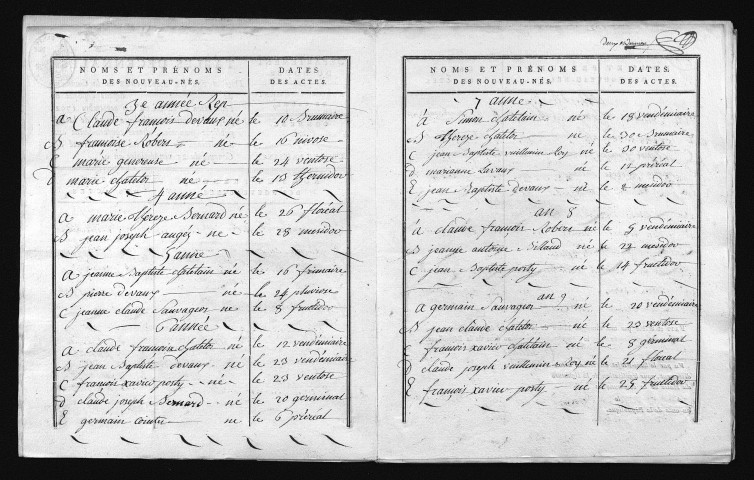 NOMS ET PRÉNOMS
DES NOUVEAU-NÉS.
DATES
DES ACTES.
3e année Rep
A Claude françois devaux né le 10 Brumaire
B françoise Robert né le 16 nivose
C marie genereuse né le 24 ventose
D marie chatelot né le 13 thermidor
4 année
A marie therese Bernard né le 26 floréal
B jean joseph né le 28 mesidor
5 année
A jeanne Baptiste chatelain né le 16 frimaire
B pierre devaux né le 24 pluviose
C jeanne claude Sauvageot né le 8 fructidor
6 année
A claude françois chatelot né le 12 vendémiaire
B jean Baptiste devaux né le 23 vendémiaire
C françois xavier porty né le 23 ventose
D claude joseph Bernard né le 20 germinal
E germain né le 6 prérial
NOMS ET PRÉNOMS
DES NOUVEAU-NÉS.
DATES
DES ACTES.
7 année
A Simon chatelain né le 18 vendémiaire
B therese chatelot né le 30 Brumaire
C jean Baptiste vuillemin Roy né le 20 ventose
D marianne devaux né le 12 prérial
E jean Baptiste Devaux né le 2 mesidor
an 8
A claude françois Robert né le 9 vendémiaire
B antoine né le 22 mesidor
C jean Baptiste porty né le 14 fructidor
an 9
A germain Sauvageot né le 20 vendémiaire
B jean claude chatelot né le 23 ventose
C françois xavier chatelain né le 8 germinal
D claude joseph vuillemin Roy né le 21 floréal
E françois xavier porty né le 25 fructidor